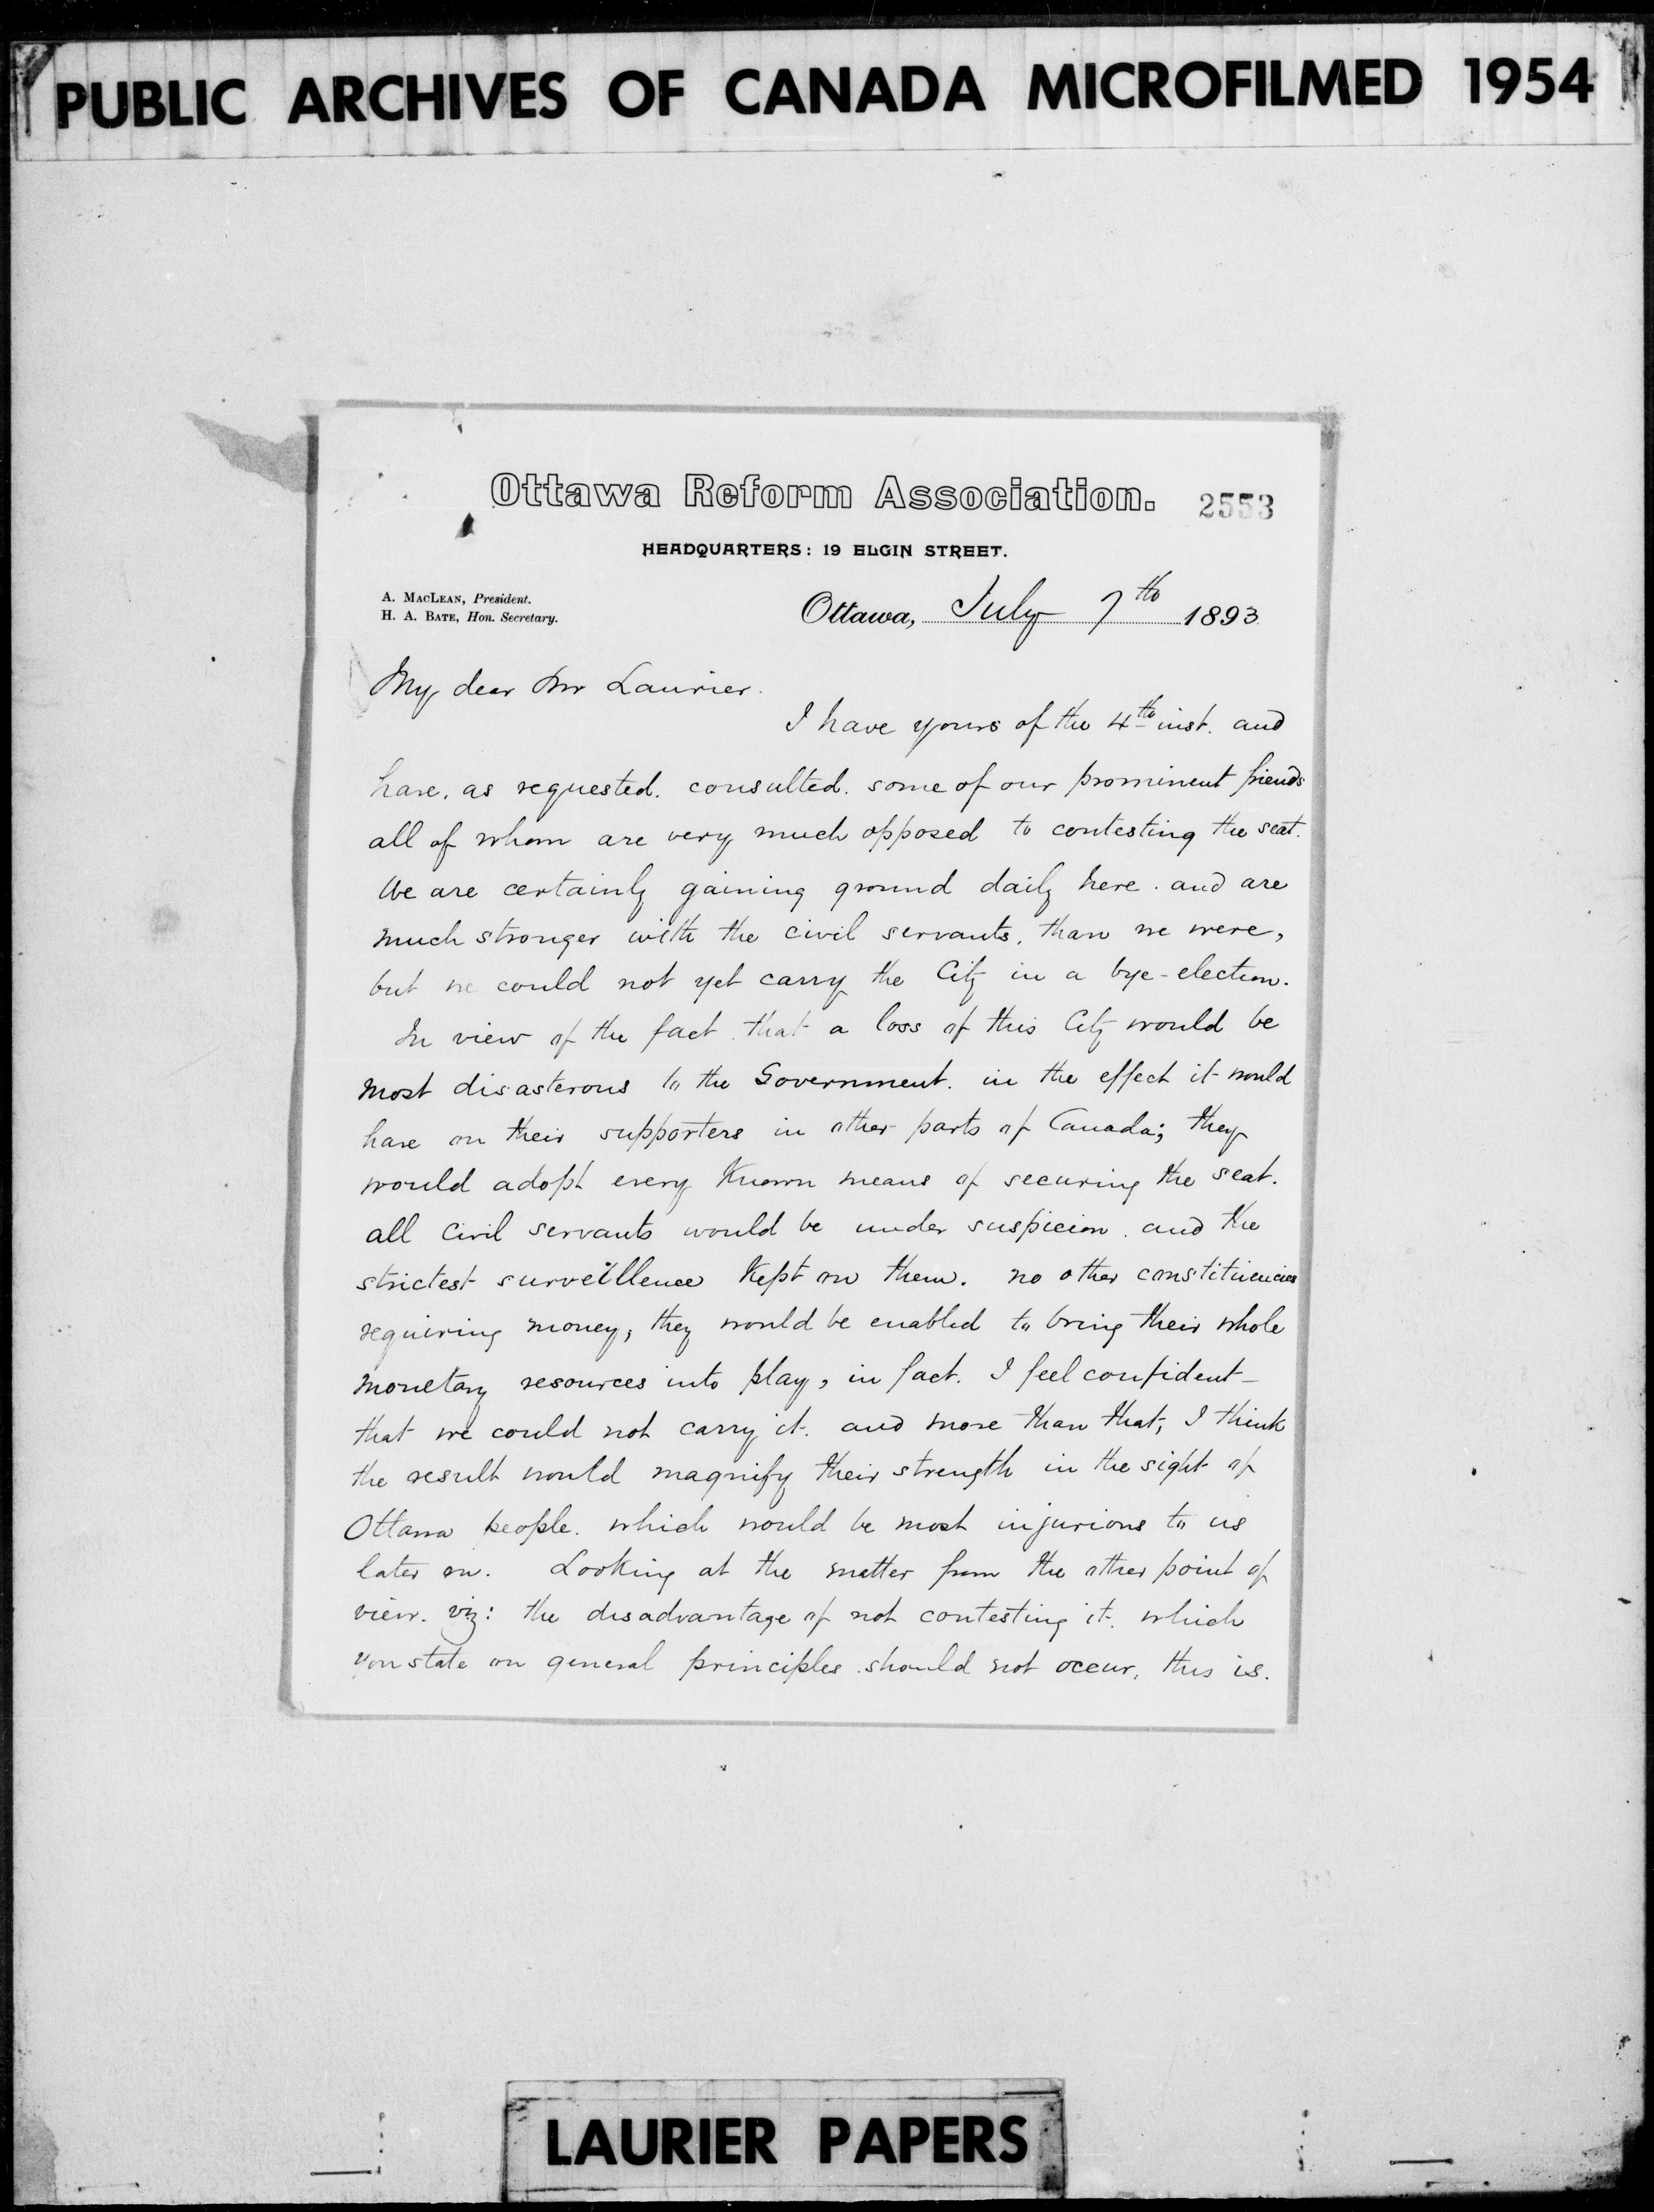 PUBLIC ARCHIVES OF CANADA MICROFILMED 1954
Ottawa Reform Association. 2553
HEADQUARTERS: 19 ELGIN STREET.
A. MACLEAN, President.
H. A. BATE, Hon. Secretary.
Ottawa, July 7th 1893
My dear Mr Laurier.
I have yours of the 4th inst. and
have, as requested. consulted. some of our prominent friends
all of whom are very much opposed to contesting the seat.
We are certainly gaining ground daily here. and are
much stronger with the civil servants, than we were,
but we could not yet carry the City in a bye-election.
In view of the fact that a loss of this City would be
most disasterous to the Government. in the effect it would
have on their supporters in other parts of Canada; they
would adopt every known means of securing the seat.
all civil servants would be under suspicion. and the
strictest surveillence kept on them. no other constituencies
requiring money, they would be enabled to bring their whole
monetary resources into play, in fact. I feel confident
that we could not carry it. and more than that, I think
the result would magnify their strength in the sight of
Ottawa people. which would be most injurious to us
later on. Looking at the matter from the other point of
view. viz: the disadvantage of not contesting it. which
you state on general principles should not occur, this is.
LAURIER PAPERS